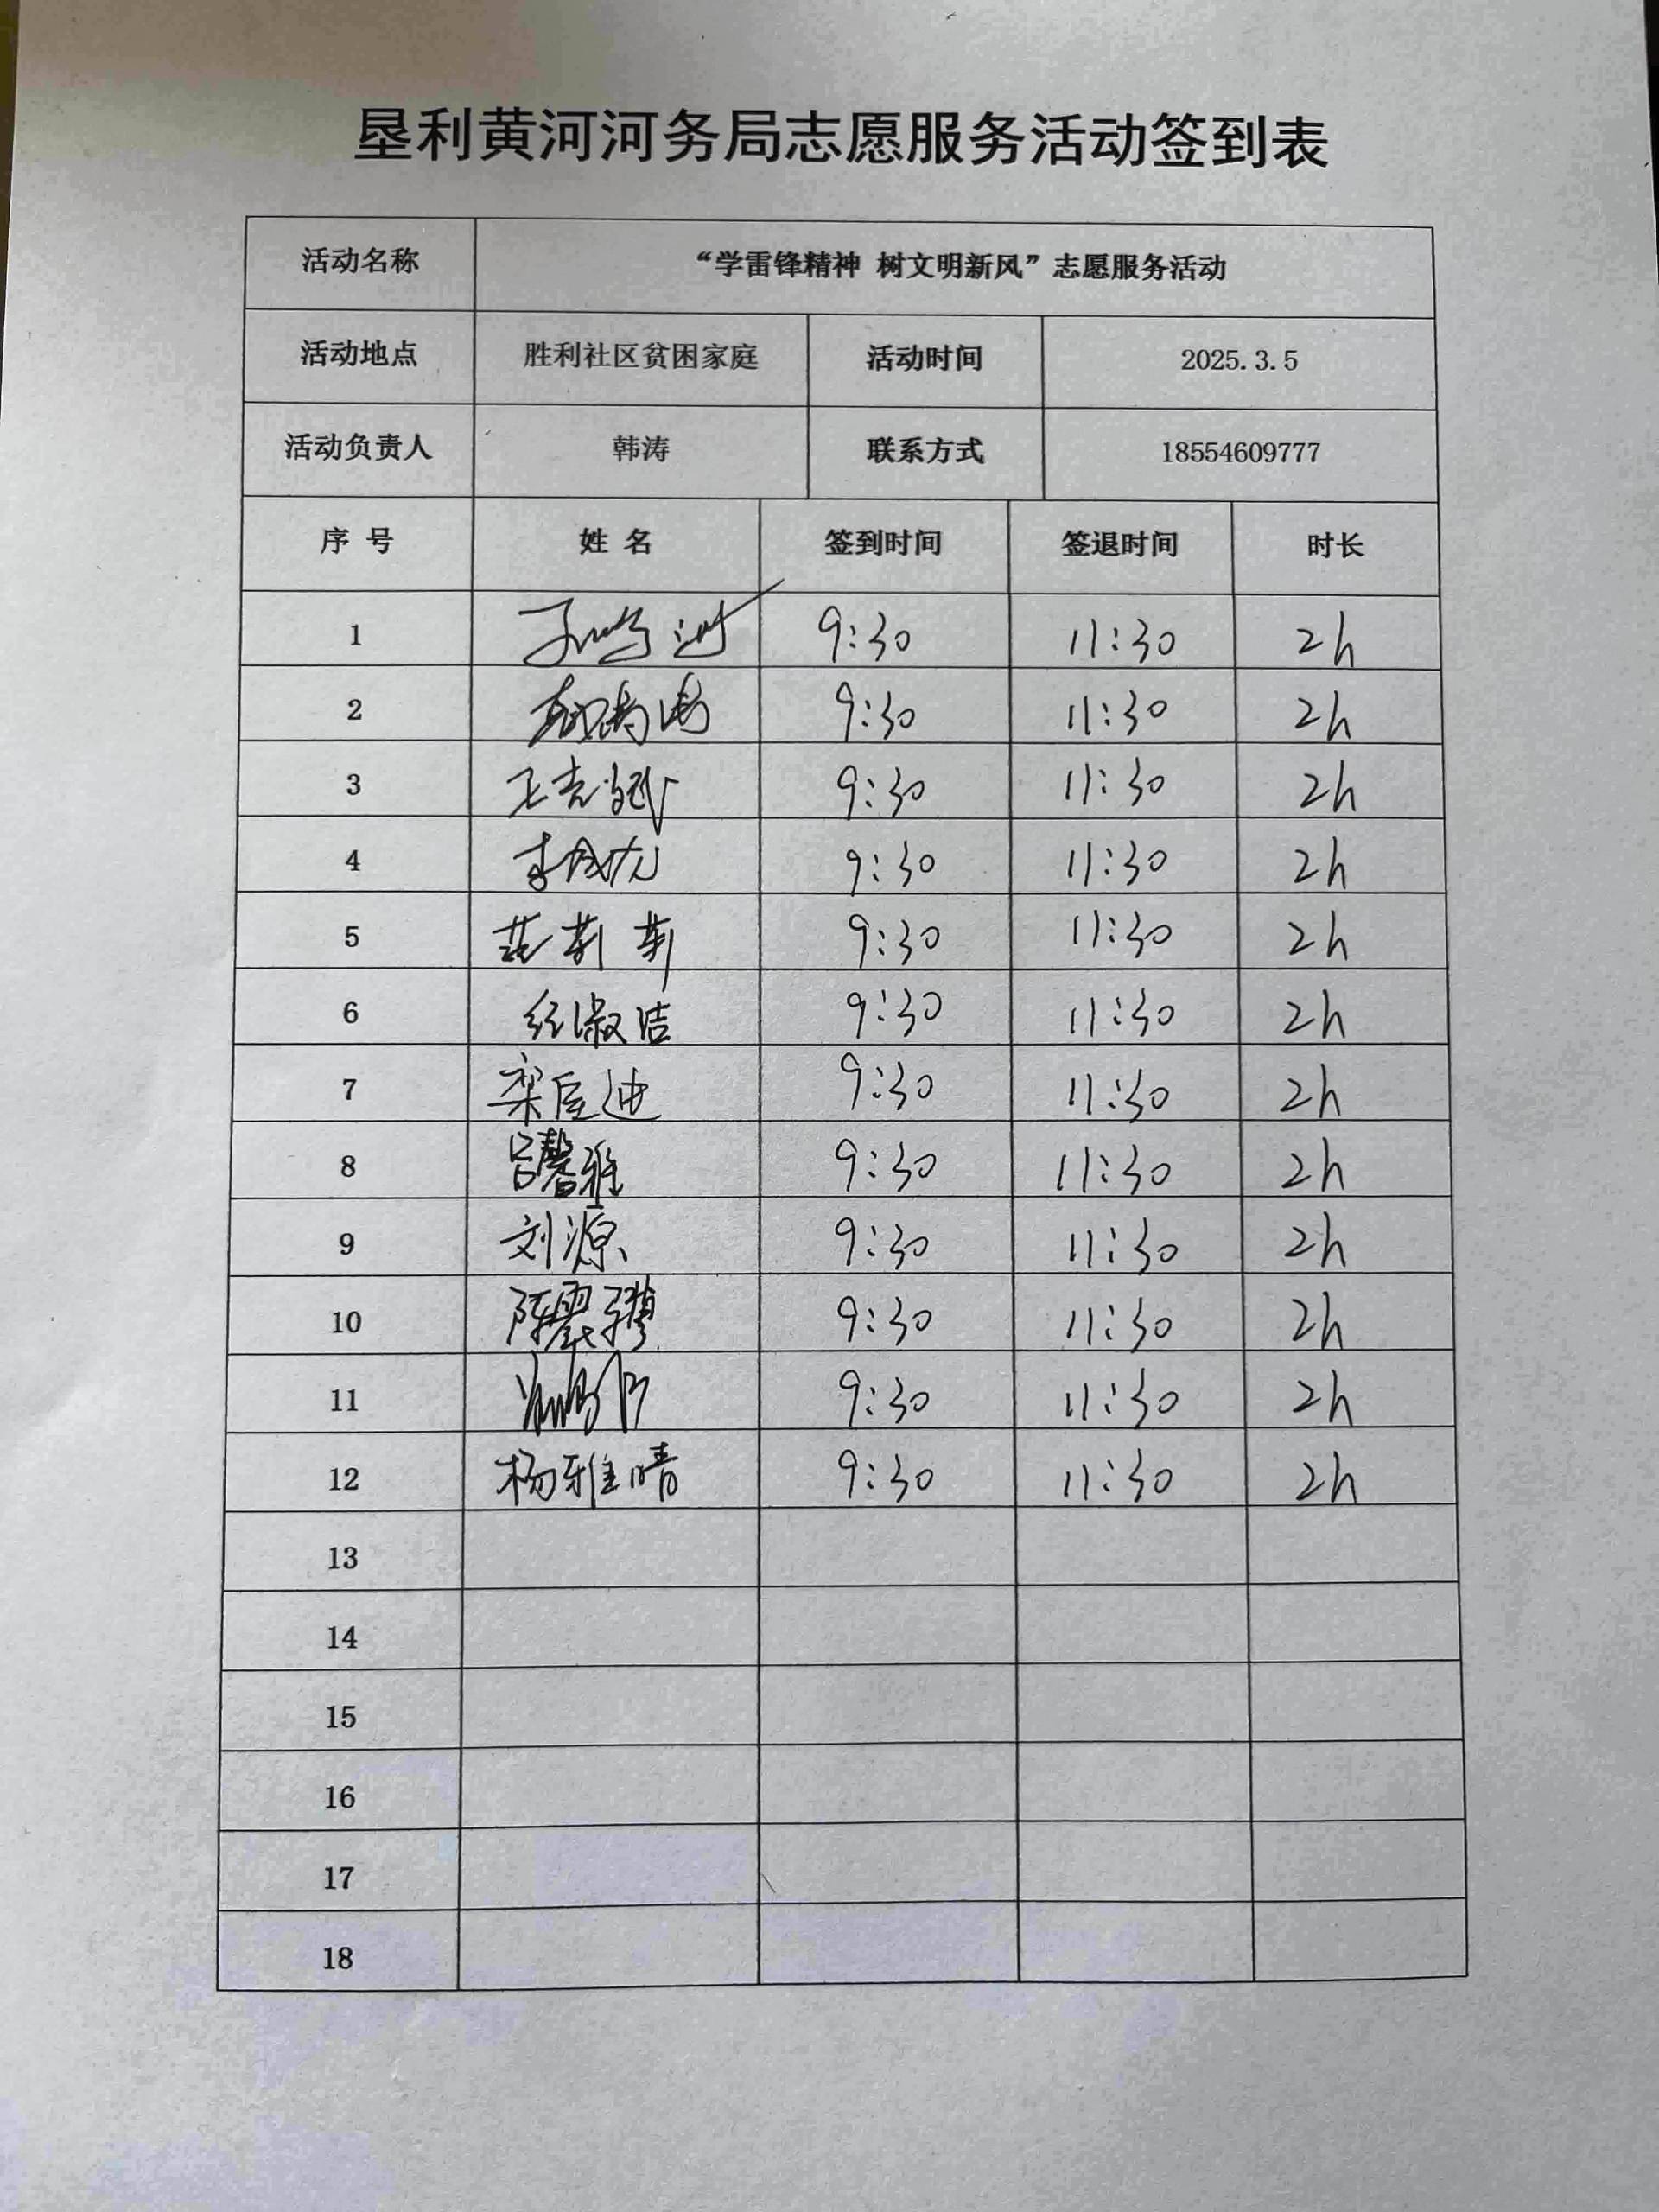 垦利黄河河务局志愿服务活动签到表
活动名称 “学雷锋精神 树文明新风”志愿服务活动
活动地点 胜利社区贫困家庭 活动时间 2025.3.5
活动负责人 韩涛 联系方式 18554609777
序号 姓名 签到时间 签退时间 时长
1 9:30 11:30 2h
2 9:30 11:30 2h
3 9:30 11:30 2h
4 9:30 11:30 2h
5 9:30 11:30 2h
6 淑洁 9:30 11:30 2h
7 9:30 11:30 2h
8 吕馨雅 9:30 11:30 2h
9 刘源 9:30 11:30 2h
10 9:30 11:30 2h
11 9:30 11:30 2h
12 杨雅晴 9:30 11:30 2h
13
14
15
16
17
18